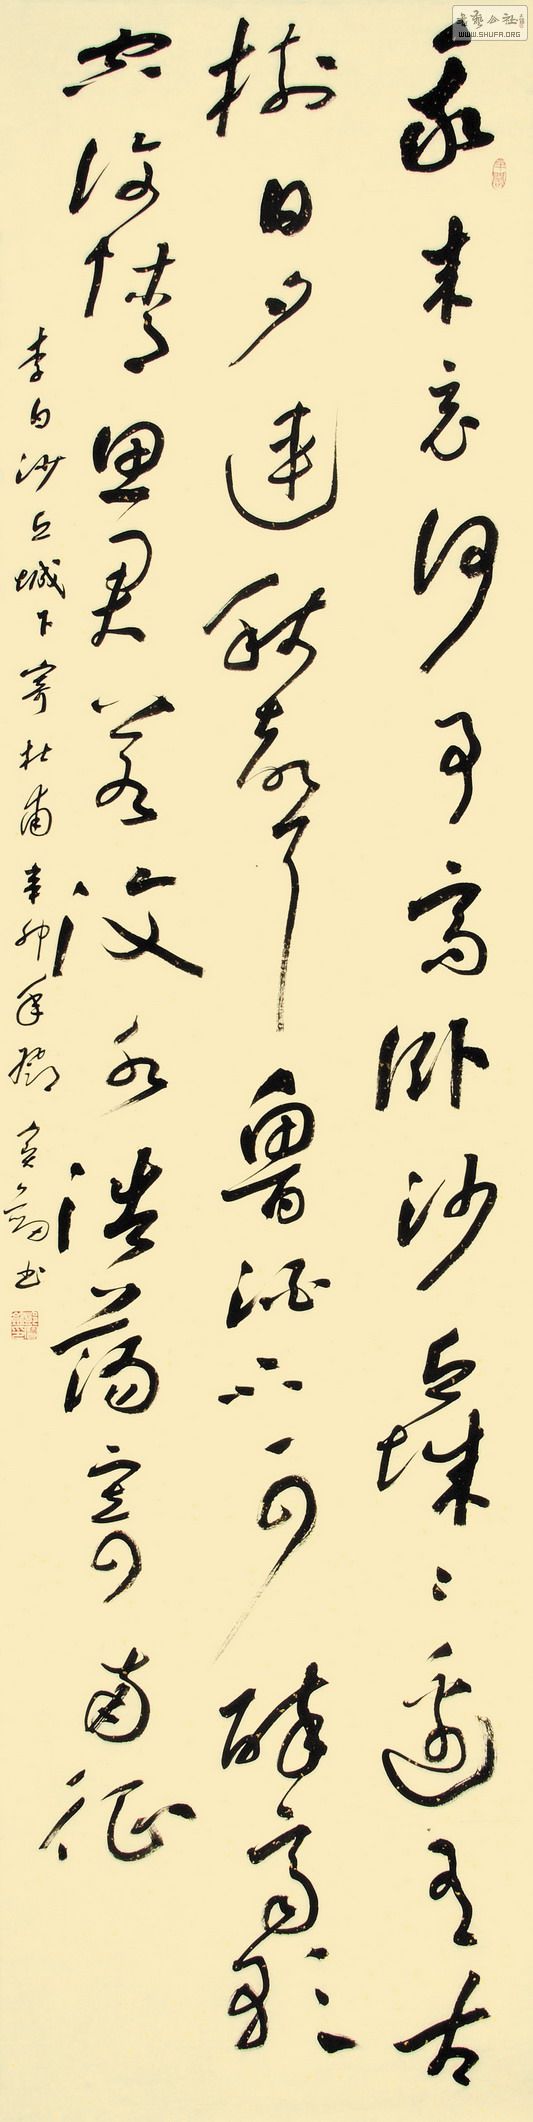 我来竟何事高卧沙丘城〻邊有古
樹日夕連秋聲魯酒不可醉齊歌
空復情思君若汶水浩蕩寄南征
李白沙丘城下寄杜甫辛卯年鄧寶劍书
书艺公社
WWW.SHUFA.ORG